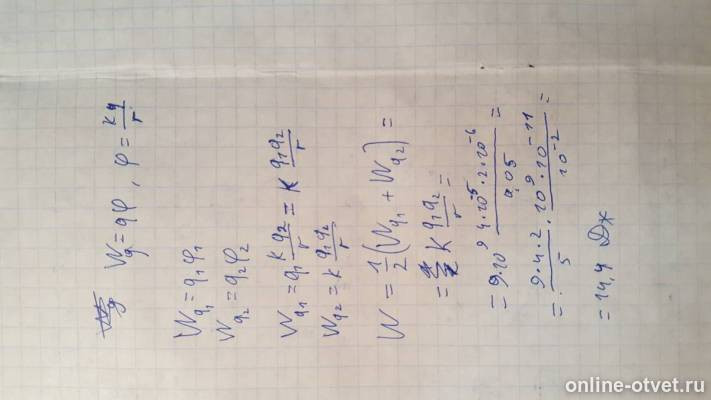 W_q = qφ, φ = kq/r
W_q1 = q1φ1
W_q2 = q2φ2
W_q1 = q1 kq2/r = k q1q2/r
W_q2 = k q1q2/r
W = 1/2 (W_q1 + W_q2) =
= k q1q2/r =
= 9·10^9 4·10^-5·2·10^-6/0,05 =
= 9·4·2/5 · 10^9·10^-11/10^-2 =
= 14,4 Дж
online-otvet.ru